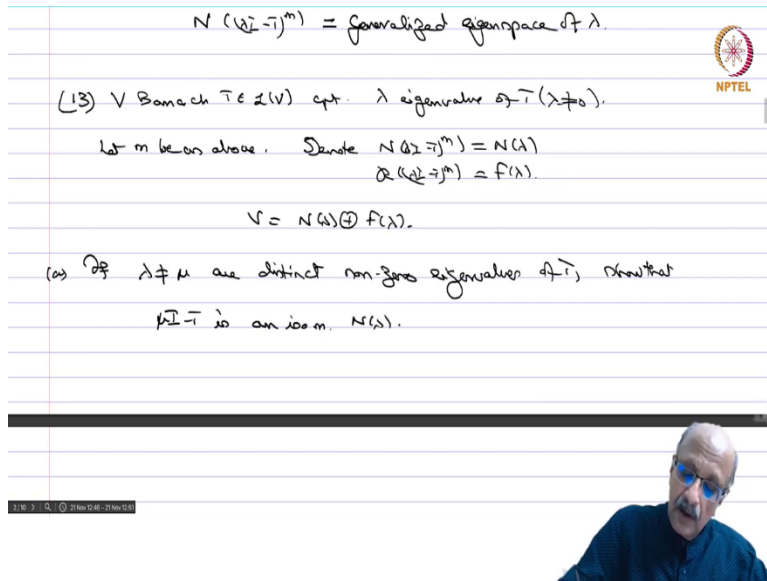 N ((λI-T)^m) = generalized eigenspace of λ.
NPTEL
(13) V Banach T∈ℒ(V) cpt. λ eigenvalue of T (λ≠0).
Let m be as above. Denote N((λI-T)^m) = N(λ)
R((λI-T)^m) = F(λ).
V = N(λ)⊕F(λ).
(a) If λ≠μ are distinct non-zero eigenvalues of T, show that
μI-T is an isom. N(λ).
2/10 21 Nov 12:46 - 21 Nov 12:51